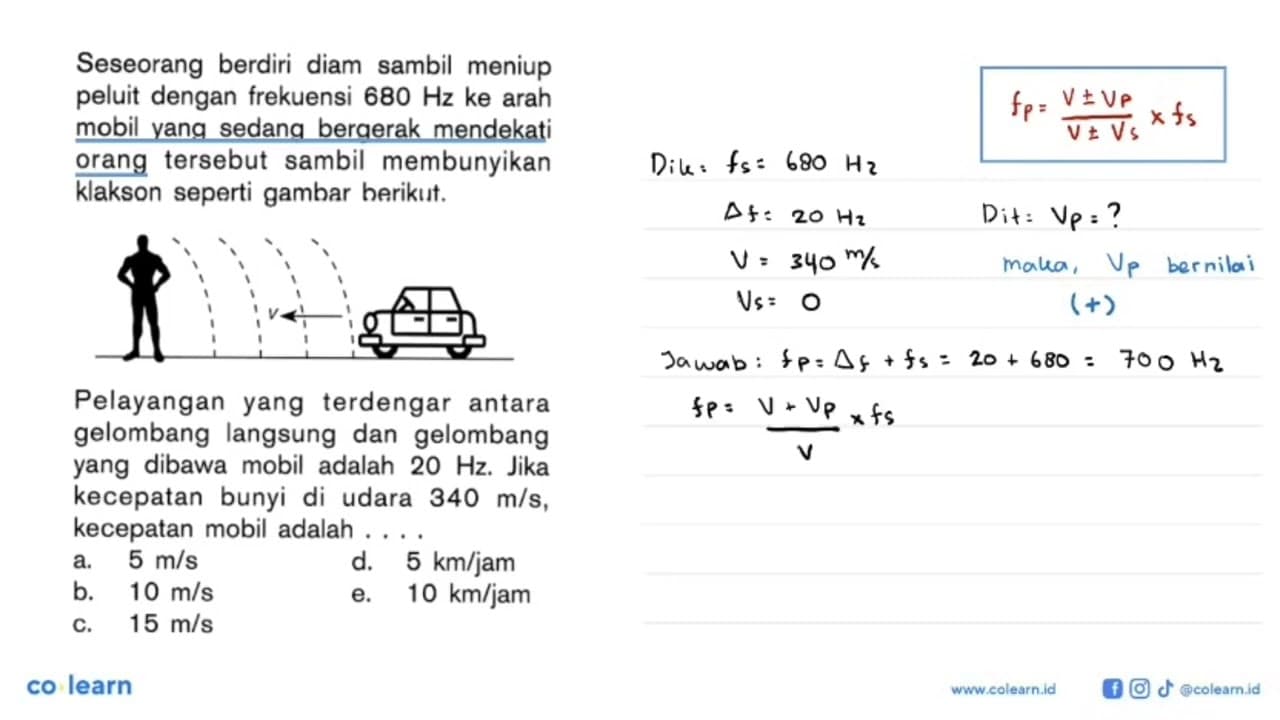 Seseorang berdiri diam sambil meniup
peluit dengan frekuensi 680 Hz ke arah
mobil yang sedang bergerak mendekati
orang tersebut sambil membunyikan
klakson seperti gambar berikut.
v
Pelayangan yang terdengar antara
gelombang langsung dan gelombang
yang dibawa mobil adalah 20 Hz. Jika
kecepatan bunyi di udara 340 m/s,
kecepatan mobil adalah . . . .
a. 5 m/s d. 5 km/jam
b. 10 m/s e. 10 km/jam
c. 15 m/s
fp = (V ± Vp)/(V ± Vs) x fs
Dik: fs = 680 Hz
Δf = 20 Hz Dit: Vp = ?
V = 340 m/s maka, Vp bernilai
Vs = 0 (+)
Jawab: fp = Δf + fs = 20 + 680 = 700 Hz
fp = (V + Vp)/V x fs
co learn
www.colearn.id @colearn.id